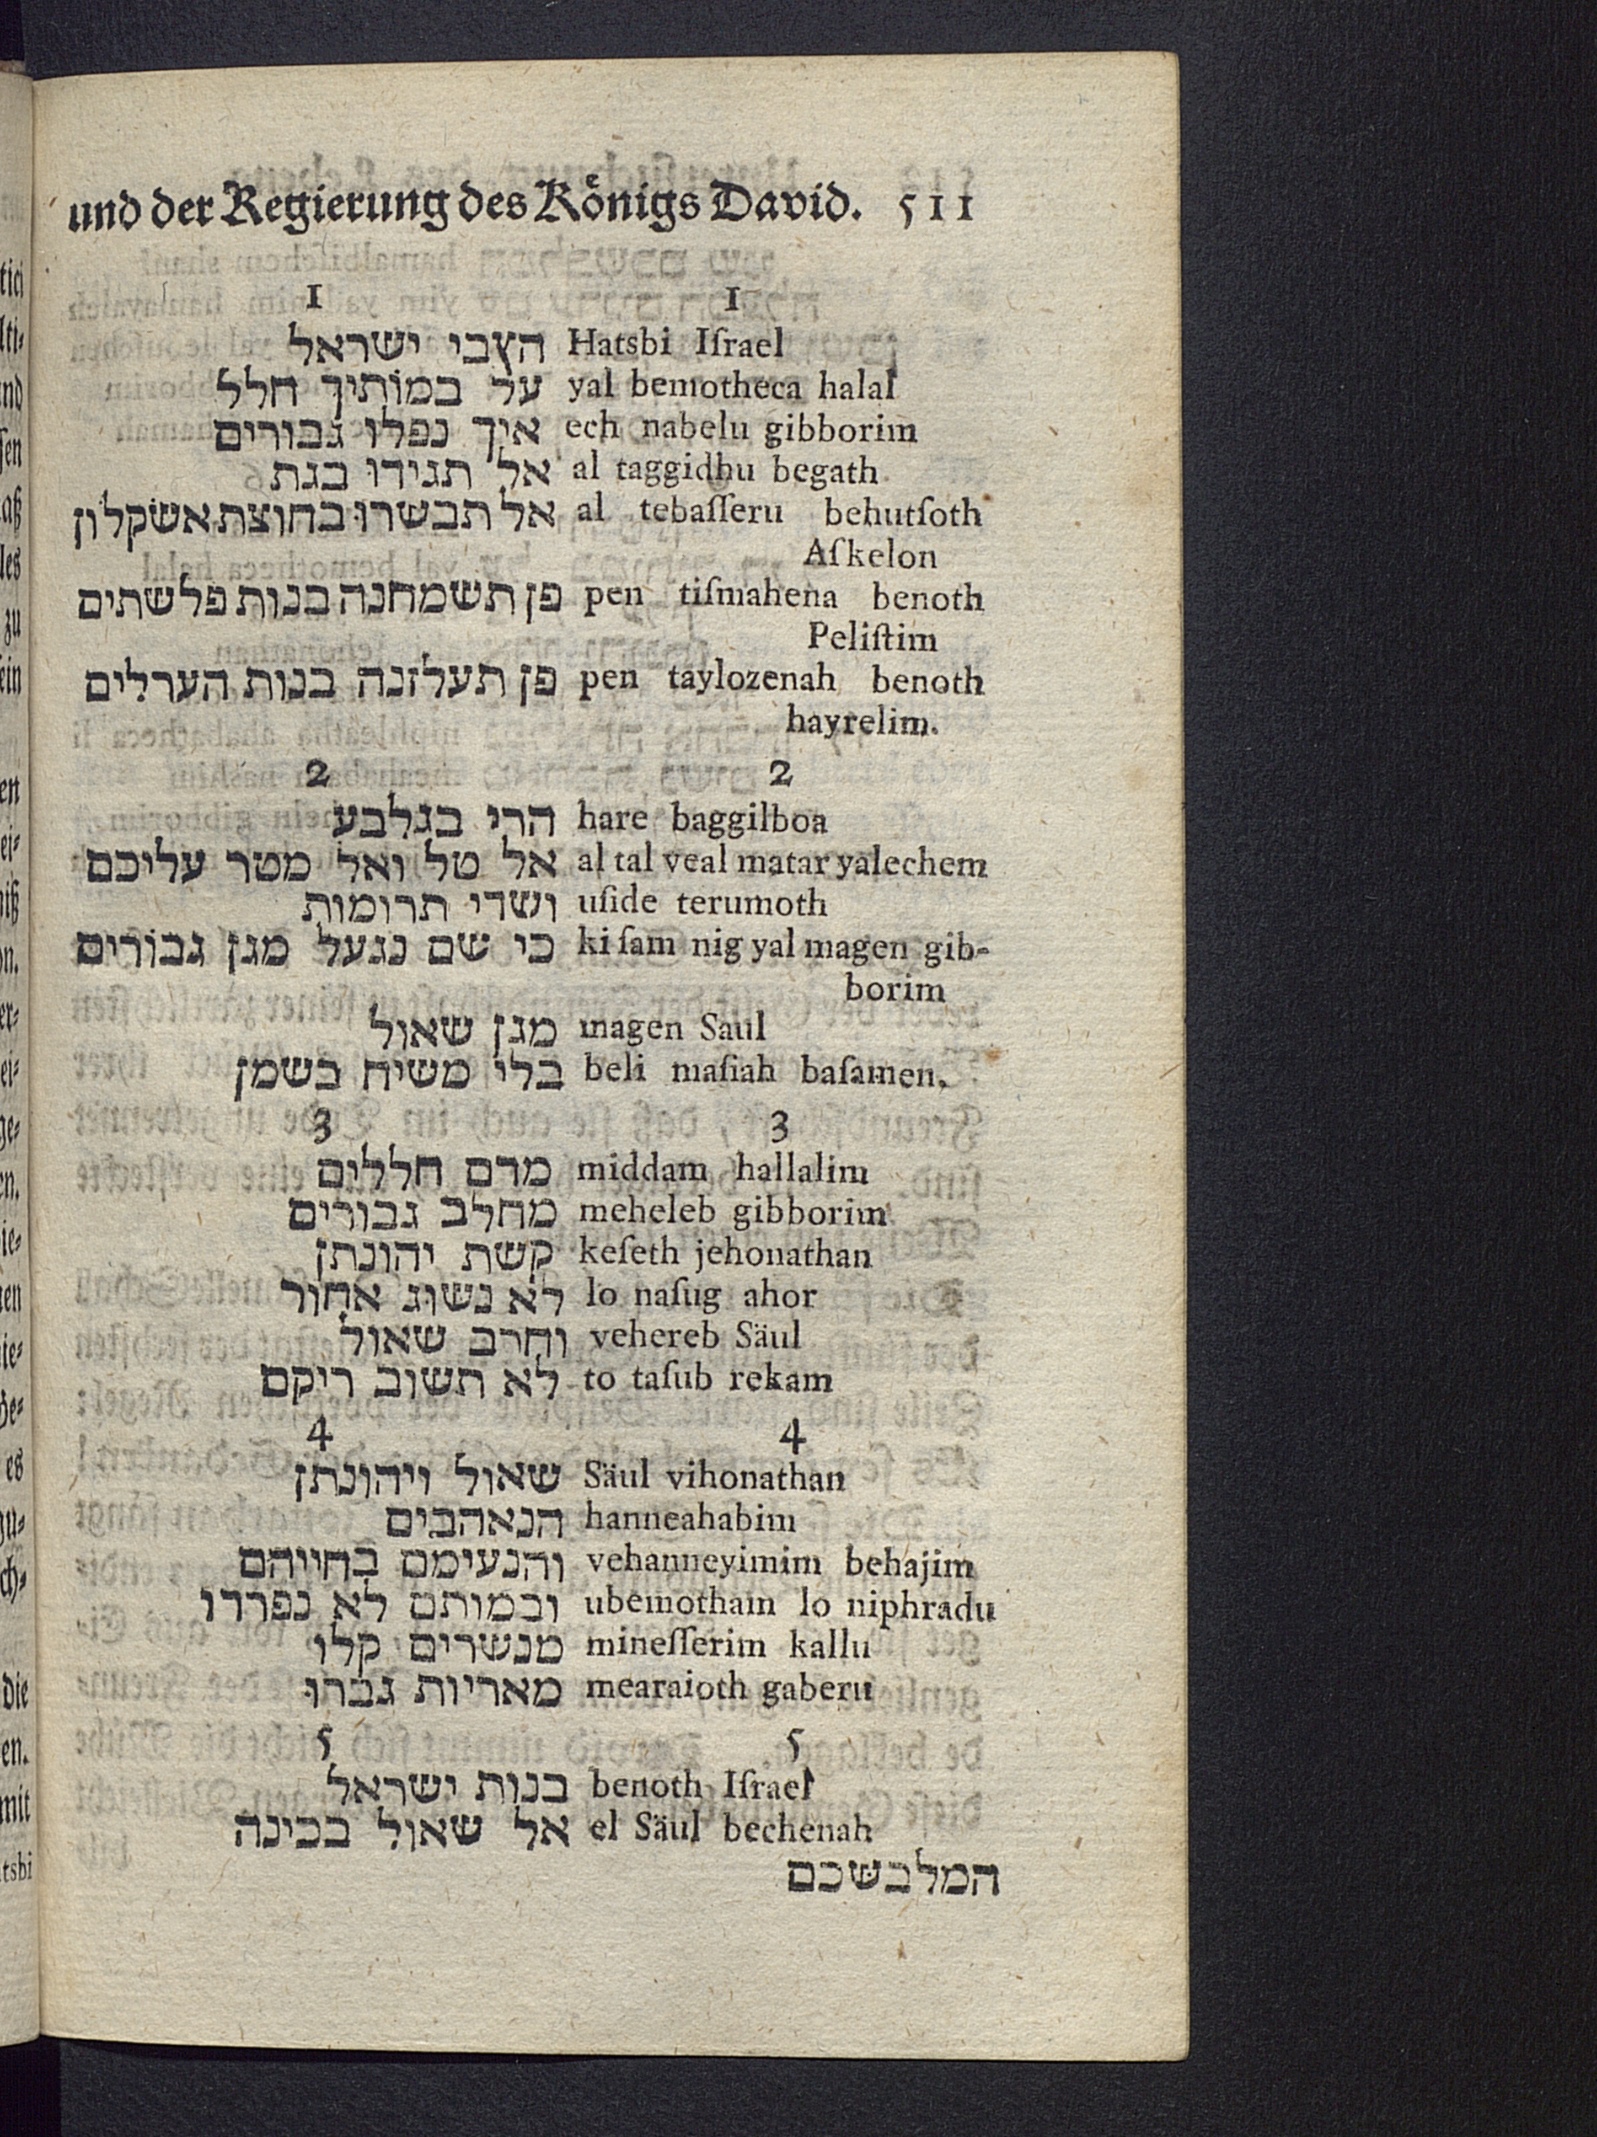 und der Regierung des Königs David. 511
1 1
הצבי ישראל Hatsbi Iſrael
על במותיך חלל yal bemotheca halal
איך נפלו גבורים ech nabelu gibborim
אל תגידו בגת al taggidhu begath
אל תבשרו בחוצת אשקלון al tebaſſeru behutſoth
Aſkelon
פן תשמחנה בנות פלשתים pen tiſmahena benoth
Peliſtim
פן תעלזנה בנות הערלים pen taylozenah benoth
hayrelim.
2 2
הרי בגלבע hare baggilboa
אל טל ואל מטר עליכם al tal veal matar yalechem
ושדי תרומות uſide terumoth
כי שם נגעל מגן גבורים ki ſam nig yal magen gib-
borim
מגן שאול magen Saul
בלי משיח בשמן beli maſiah baſamen.
3 3
מדם חללים middam hallalim
מחלב גבורים meheleb gibborim
קשת יהונתן keſeth jehonathan
לא נשוג אחור lo naſug ahor
וחרב שאול vehereb Säul
לא תשוב ריקם to taſub rekam
4 4
שאול ויהונתן Säul vihonathan
הנאהבים hanneahabim
והנעימם בחייהם vehanneyimim behajim
ובמותם לא נפרדו ubemotham lo niphradu
מנשרים קלו mineſſerim kallu
מאריות גברו mearaioth gaberu
5 5
בנות ישראל benoth Iſrael
אל שאול בכינה el Säul bechenah
המלבשכם